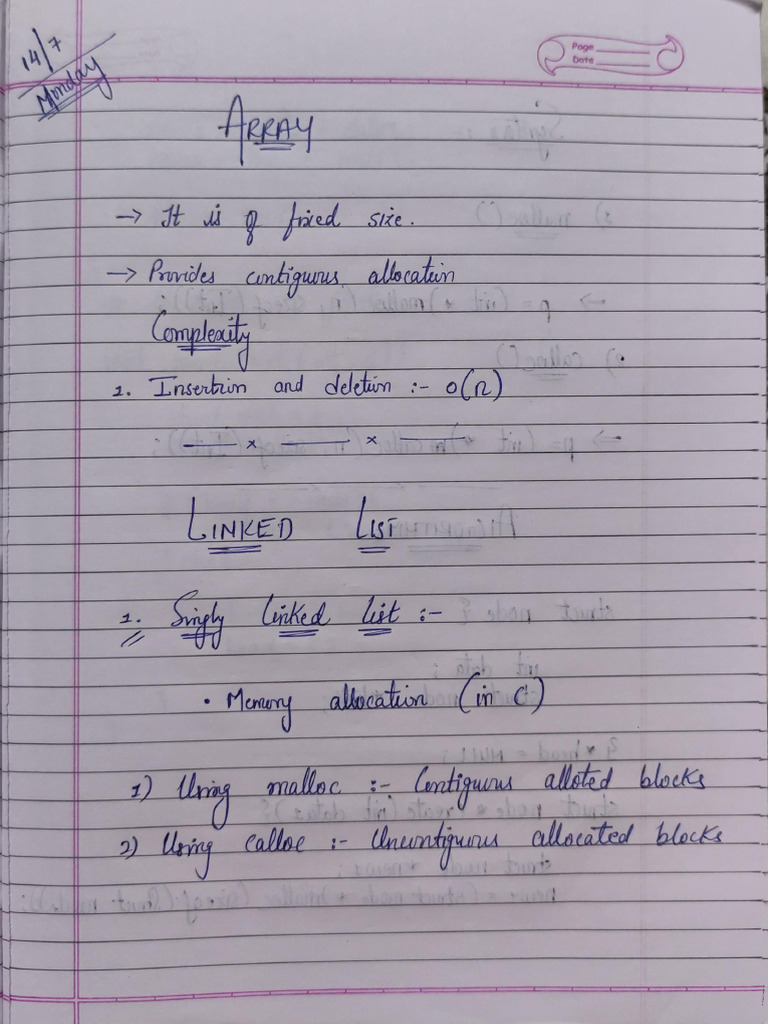 14/7
Monday
Page
Date
ARRAY
→ It is of fixed size.
→ Provides contiguous allocation
Complexity
1. Insertion and deletion :- O(n)
— x — x —
LINKED LIST
1. Singly linked list :-
• Memory allocation (in C)
1) Using malloc :- Contiguous alloted blocks
2) Using calloc :- Uncontiguous allocated blocks